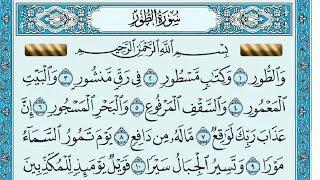 سُورَةُ الطُّورِ
بِسْمِ اللَّهِ الرَّحْمَٰنِ الرَّحِيمِ
وَالطُّورِ ١ وَكِتَابٍ مَسْطُورٍ ٢ فِي رَقٍّ مَنْشُورٍ ٣ وَالْبَيْتِ
الْمَعْمُورِ ٤ وَالسَّقْفِ الْمَرْفُوعِ ٥ وَالْبَحْرِ الْمَسْجُورِ ٦ إِنَّ
عَذَابَ رَبِّكَ لَوَاقِعٌ ٧ مَا لَهُ مِنْ دَافِعٍ ٨ يَوْمَ تَمُورُ السَّمَاءُ
مَوْرًا ٩ وَتَسِيرُ الْجِبَالُ سَيْرًا ١٠ فَوَيْلٌ يَوْمَئِذٍ لِلْمُكَذِّبِينَ